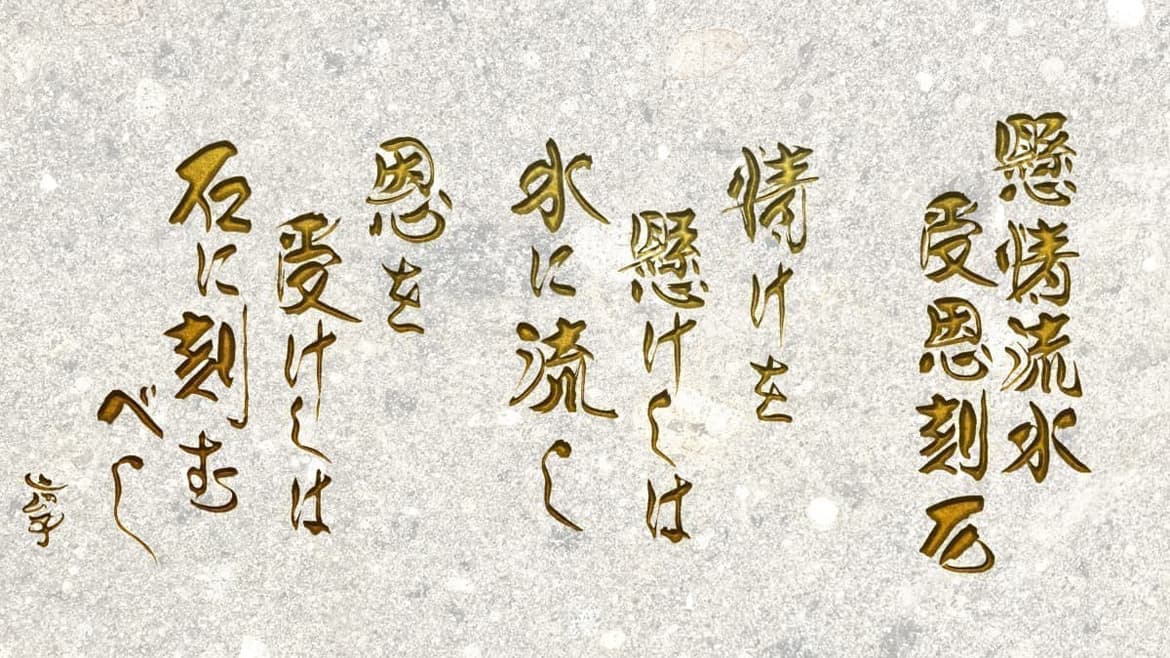 懸情流水
受恩刻石
情けを
懸けしは
水に流し
恩を
受けしは
石に刻む
べし